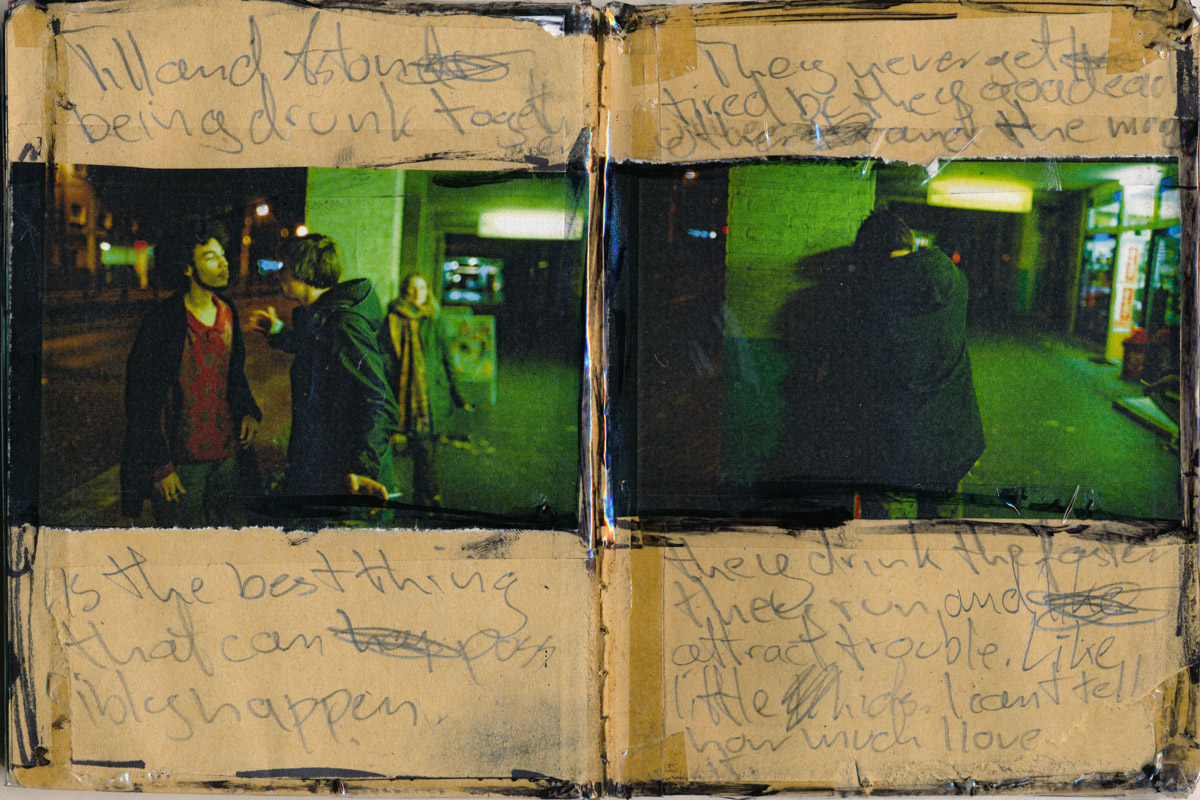 Till and
being drunk togeth
is the best thing
that can poss
ibley happen.
They never get
tired they goad each
other and the more
they drink the faster
they run, and
attract trouble. Like
little kids. I cant tell
how much I love